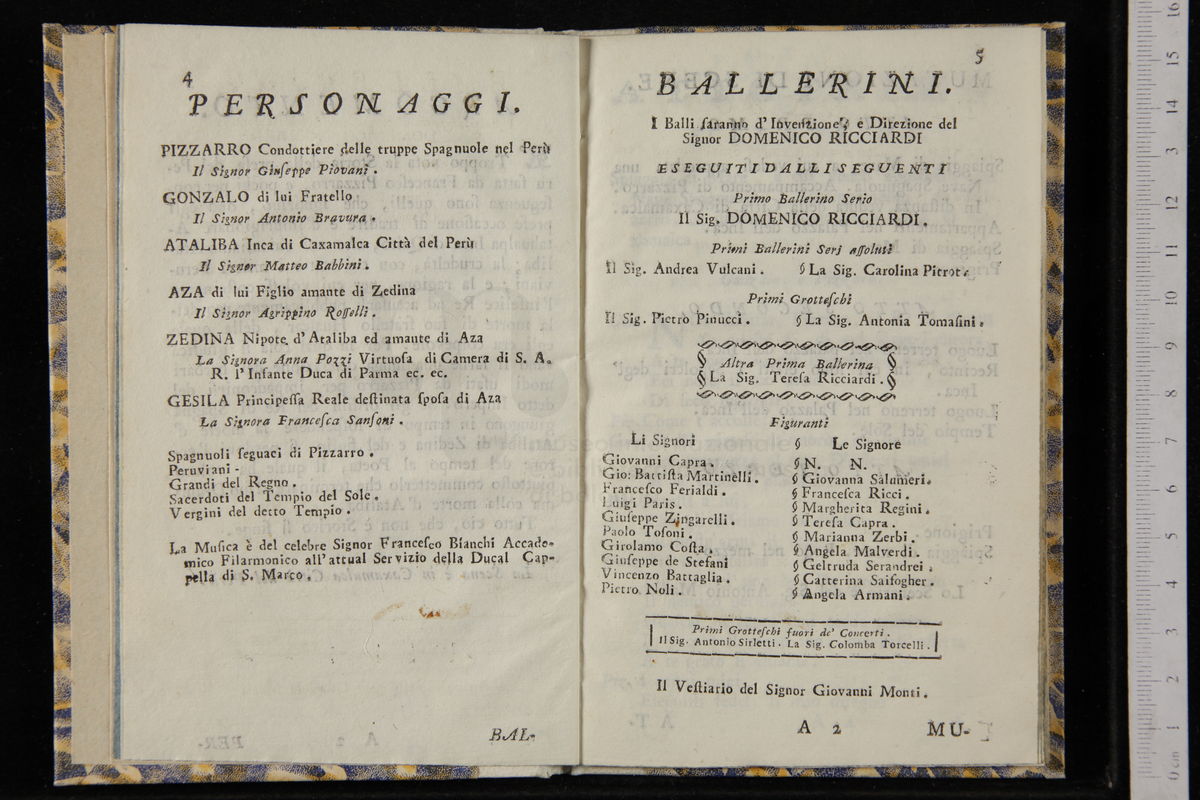 4
PERSONAGGI.
PIZZARRO Condottiere delle truppe Spagnuole nel Perù
Il Signor Giuseppe Piovani.
GONZALO di lui Fratello
Il Signor Antonio Bravura.
ATALIBA Inca di Caxamalca Città del Perù
Il Signor Matteo Babbini.
AZA di lui Figlio amante di Zedina
Il Signor Agrippino Rosselli.
ZEDINA Nipote d'Ataliba ed amante di Aza
La Signora Anna Pozzi Virtuosa di Camera di S. A.
R. l'Infante Duca di Parma ec. ec.
GESILA Principessa Reale destinata sposa di Aza
La Signora Francesca Sansoni.
Spagnuoli seguaci di Pizzarro.
Peruviani.
Grandi del Regno.
Sacerdoti del Tempio del Sole.
Vergini del detto Tempio.
La Musica è del celebre Signor Francesco Bianchi Accado-
mico Filarmonico all'attual Servizio della Ducal Cap-
pella di S. Marco.
BAL-
5
BALLERINI.
I Balli saranno d'Invenzione, e Direzione del
Signor DOMENICO RICCIARDI
ESEGUITI DALLI SEGUENTI
Primo Ballerino Serio
Il Sig. DOMENICO RICCIARDI.
Primi Ballerini Serj assoluti
Il Sig. Andrea Vulcani. § La Sig. Carolina Pitrot.
Primi Grotteschi
Il Sig. Pietro Pinucci. § La Sig. Antonia Tomasini.
Altra Prima Ballerina
La Sig. Teresa Ricciardi.
Figuranti
Li Signori § Le Signore
Giovanni Capra. § N. N.
Gio: Battista Martinelli. § Giovanna Salumeri.
Francesco Ferialdi. § Francesca Ricci.
Luigi Paris. § Margherita Regini.
Giuseppe Zingarelli. § Teresa Capra.
Paolo Tosoni. § Marianna Zerbi.
Girolamo Costa. § Angela Malverdi.
Giuseppe de Stefani § Geltruda Serandrei.
Vincenzo Battaglia. § Catterina Saifogher.
Pietro Noli. § Angela Armani.
Primi Grotteschi fuori de' Concerti.
Il Sig. Antonio Sirletti. La Sig. Colomba Torcelli.
Il Vestiario del Signor Giovanni Monti.
A 2 MU-